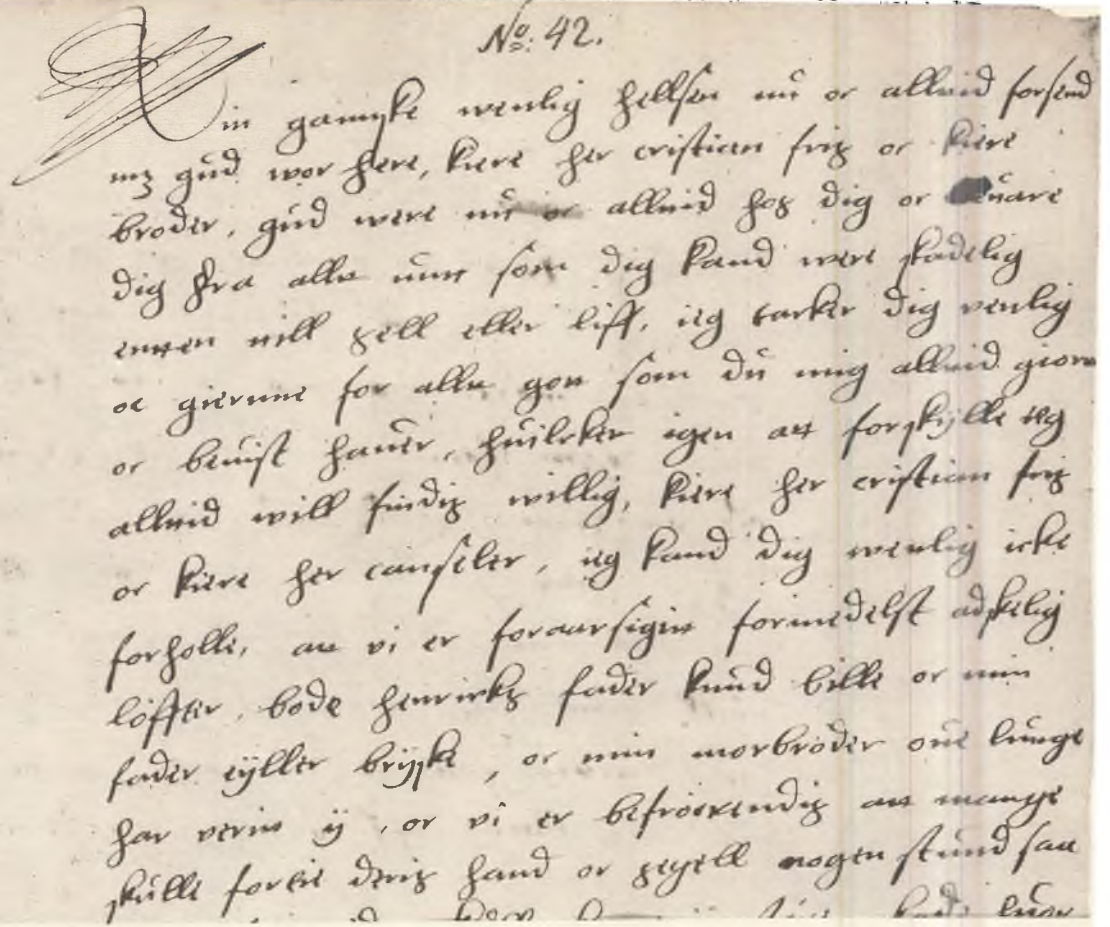 No: 42.
Min gannske wenlig hellsen nu oc alltid forsend
mz gud wor here, kiere her cristian friis oc kiere
broder, gud were nu oc alltid hos dig oc beuare
dig fra alltt untt som dig kand were skadelig
entten till siell eller liff, ieg tacker dig venlig
oc giernne for alltt gott som du mig alltid giortt
oc beuist hauer, huilcket igen att forskylle ieg
alltid will findis willig, kiere her cristian friis
oc kiere her canseler, ieg kand dig wenlig icke
forholle, att vi er foraarsigtt formedelst adskelig
løffter, bode henricks fader knud bille oc min
fader eyller bryske, oc min morbroder oue lunge
har veritt y, oc vi er befrøctendis att mange
skulle fortie deris hand oc segell nogen stund saa